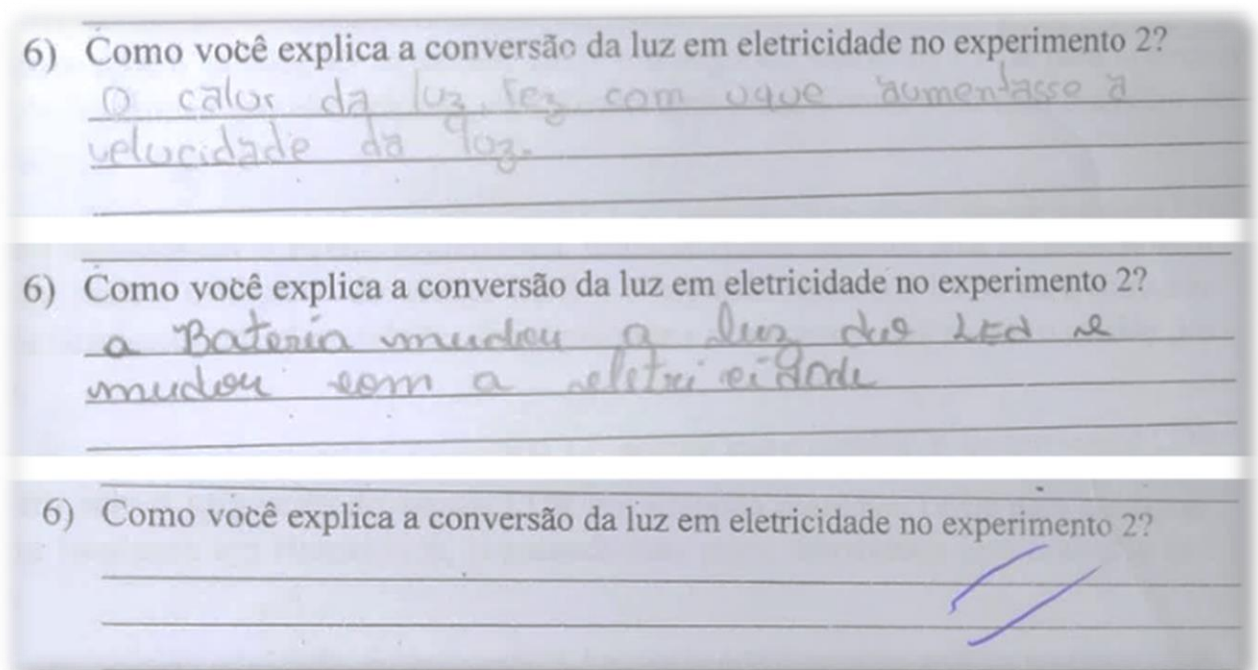 6) Como você explica a conversão da luz em eletricidade no experimento 2?
O calor da luz, fez com uque aumentasse a
velocidade da luz.
6) Como você explica a conversão da luz em eletricidade no experimento 2?
a Bateria mudou a luz dus LED e
mudou com a eletricidade
6) Como você explica a conversão da luz em eletricidade no experimento 2?